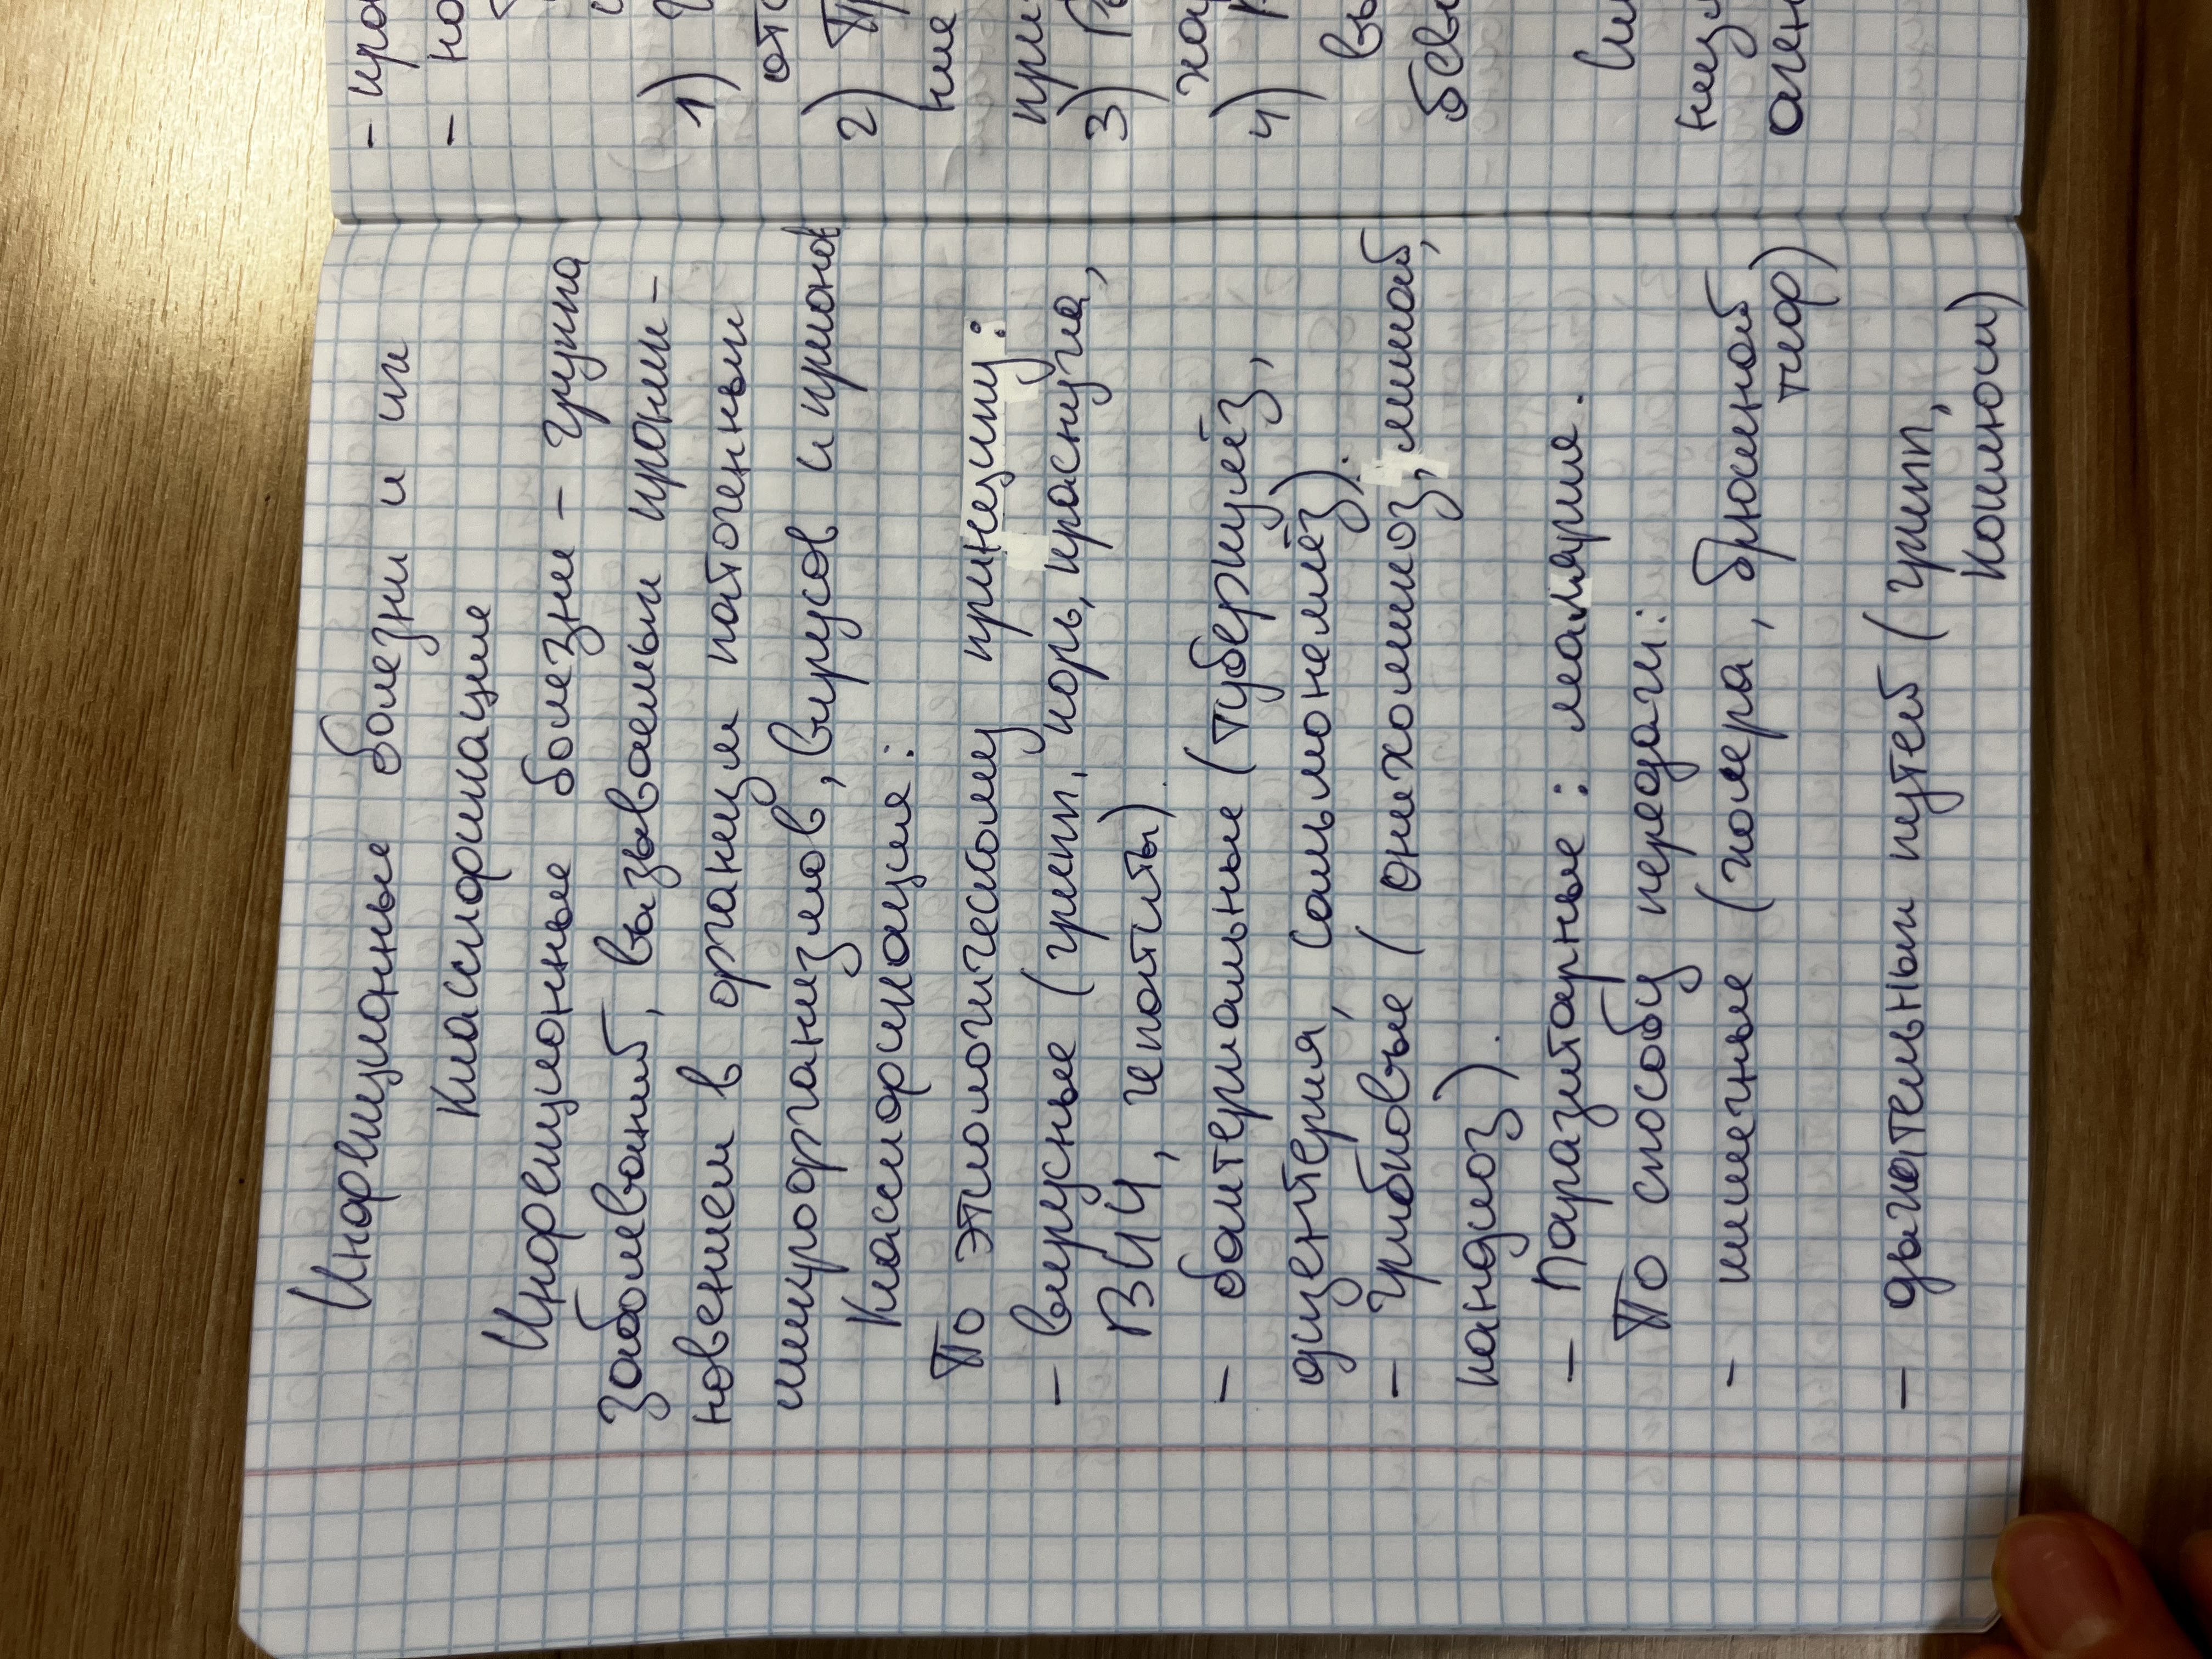 Инфекционные болезни и их
классификация
Инфекционные болезни – группа
заболеваний, вызываемых проник-
новением в организм патогенных
микроорганизмов, вирусов и прионов
Классификация:
По этиологическому принципу:
– вирусные (грипп, корь, краснуха,
ВИЧ, гепатиты).
– бактериальные (туберкулёз,
дизентерия, сальмонеллёз).
– грибковые (онихомикоз, лишай,
кандидоз).
– Паразитарные: малярия.
По способу передачи:
– кишечные (холера, брюшной
тиф)
– дыхательных путей (грипп,
коклюш)
–
–
1)
2)
ние
при
3)
4)